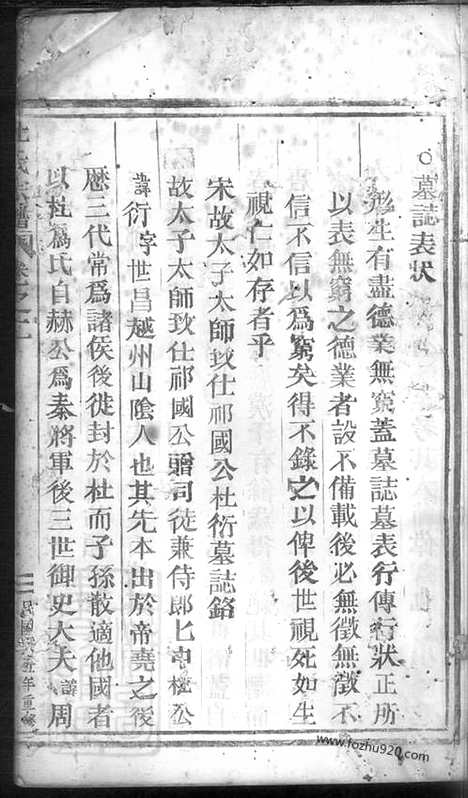 ○墓誌表狀
形生有盡德業無窮蓋墓誌墓表行傳行狀正所
以表無窮之德業者設不備載後必無徵無徵不
信不信以爲窮矣得不錄之以俾後世視死如生
視仁如存者乎
宋故太子太師致仕祁國公杜衍墓誌銘
故太子太師致仕祁國公贈司徒兼侍郎杜公
諱衍字世昌越州山陰人也其先本出於帝堯之後
歷三代常爲諸侯後徙封於杜而子孫散適他國者
以杜爲氏自赫公爲秦將軍後三世御史大夫諱周
氏譜
年重
www.fozhu920.com